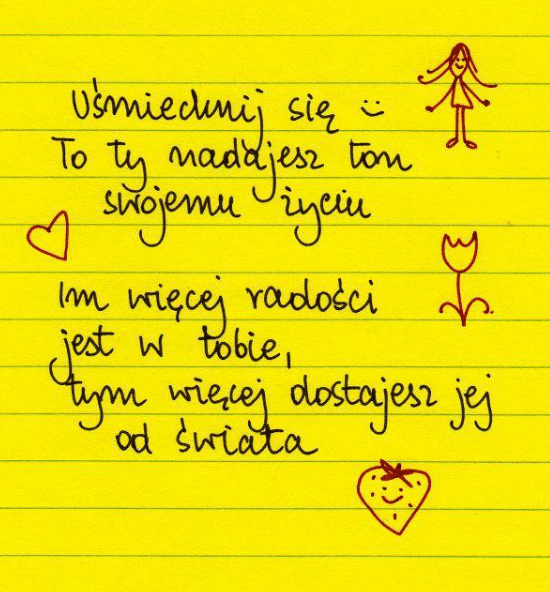 Uśmiechnij się :)
To ty nadajesz ton
swojemu życiu
Im więcej radości
jest w tobie,
tym więcej dostajesz jej
od świata